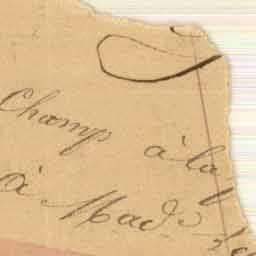 Champ à la
à Mad.e